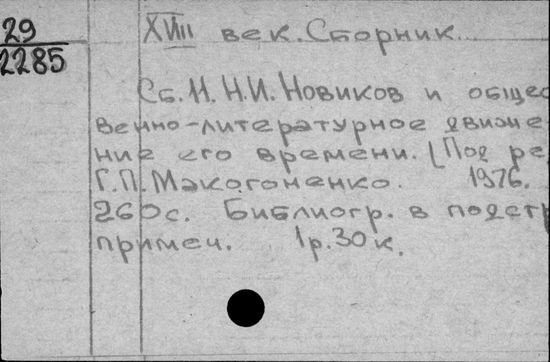 29
2285
XVIII век. Сборник...
Сб. 11. Н.И. Новиков и общес
венно-литературное движе
ние его времени. [Под ре
Г.П. Макогоненко. 1976.
260с. Библиогр. в подстр
примеч. 1р.30к.